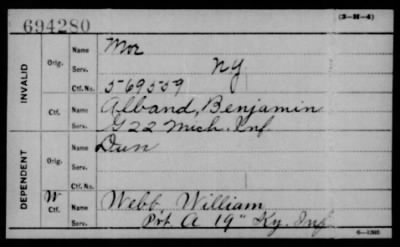 694280
(3-H-4)
INVALID
Orig.
Name Mor
Serv. NY
Ctf.No. 569559
Ctf.
Name Alband, Benjamin
Serv. G 22 Mich. Inf
DEPENDENT
Orig.
Name Dun
Serv.
Ctf.No.
W Ctf.
Name Webb William
Serv. Pvt. A 19" Ky. Inf
6-1595